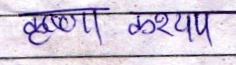 कृष्णा कश्यप